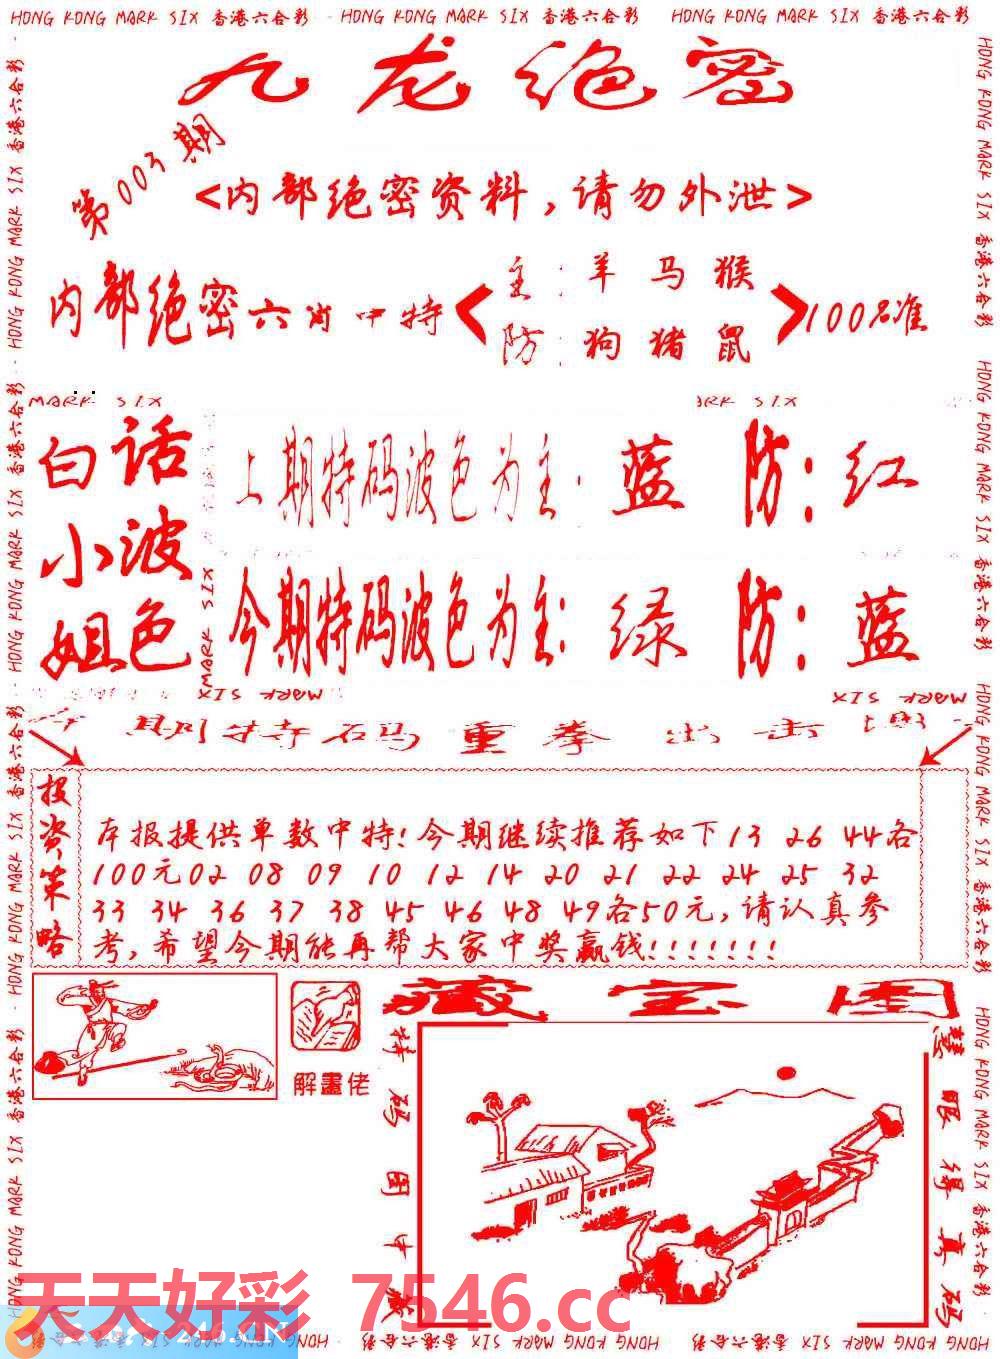 HONG KONG MARK SIX 香港六合彩 HONG KONG MARK SIX 香港六合彩 HONG KONG MARK SIX 香港六合彩
九龙绝密
第003期
<内部绝密资料,请勿外泄>
内部绝密六肖中特
主:羊 马 猴
防:狗 猪 鼠
100%准
MARK SIX
白话
小波
姐色
上期特码波色为主:蓝 防:红
今期特码波色为主:绿 防:蓝
MARK SIX
MARK SIX
MARK SIX
期特码重拳出击
投资策略
本报提供单数中特!今期继续推荐如下13 26 44各
100元02 08 09 10 12 14 20 21 22 24 25 32
33 34 36 37 38 45 46 48 49各50元,请认真参
考,希望今期能再帮大家中奖赢钱!!!!!!!
解畫佬
藏宝图
特码图中藏
慧眼得真码
天天好彩 7546.cc
HONG KONG MARK SIX 香港六合彩